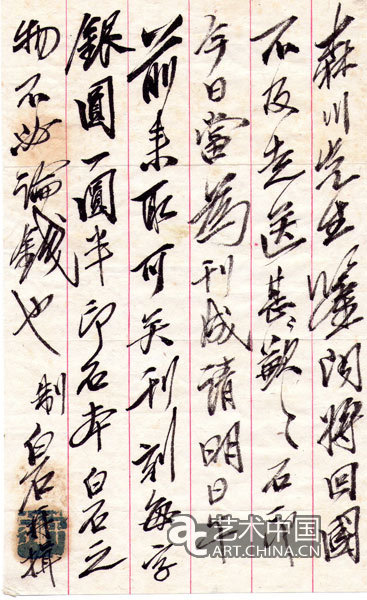 森川先生鑒聞將回國
不及走送甚歉〻石印
今日當為刊成請明日午
前來取可矣刊刻每字
銀圓一圓半印石本白石之
物不必論錢也 制白石揖
艺术中国
ART.CHINA.CN